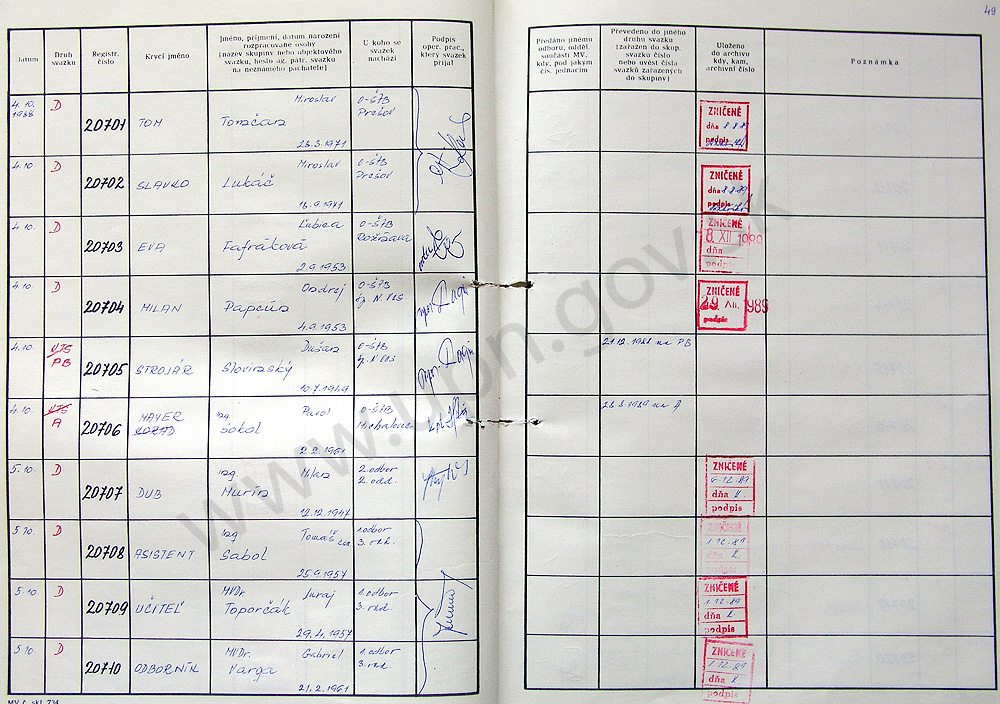 49
Datum
Druh svazku
Registr. číslo
Krycí jméno
Jméno, příjmení, datum narození rozpracované osoby (název skupiny nebo objektového svazku, heslo ag. pátr. svazku na neznámého pachatele)
U koho se svazek nachází
Podpis oper. prac., který svazek přijal
Předáno jinému odboru, odděl. součásti MV, kdy, pod jakým čís. jednacím
Převedeno do jiného druhu svazku (zařazen do skup. svazku číslo nebo uvést čísla svazků zařazených do skupiny)
Uloženo do archivu kdy, kam, archivní číslo
Poznámka
4.10. 1988 D 20701 TOM Miroslav Tomčan 28.3.1971 O-ŠTB Prešov ZNIČENÉ dňa 8.8.89 podpis
4.10 D 20702 SLAVKO Miroslav Lukáč O-ŠTB Prešov ZNIČENÉ dňa 8.8.89 podpis
4.10 D 20703 EVA Ľubica Tafráková 2.9.1953 O-ŠTB Rožňava ZNIČENÉ 8. XII 1989 dňa podpis
4.10 D 20704 MILAN Ondrej Papcún 4.9.1953 O-ŠTB Sp. N. VES ZNIČENÉ 29. XII. 1989 podpis
4.10. PB 20705 STROJÁR Dušan Slovinský 10.7.1949 O-ŠTB Sp. N. VES 21.12.1988 na PB
4.10. A 20706 MAYER Ing. Pavol Sokol 2.2.1961 O-ŠTB Michalovce 28.3.1989 na A
5.10. D 20707 DUB Ing. Milan Hurin 12.12.1947 2.odbor 2.odd. ZNIČENÉ 6.12.89 dňa podpis
5.10. D 20708 ASISTENT Ing. Tomáš Sabol 25.9.1957 1.odbor ZNIČENÉ 1.12.89 dňa podpis
5.10 D 20709 UČITEĽ MVDr Juraj Toporčák 29.4.1957 1.odbor ZNIČENÉ 1.12.89 dňa podpis
5.10 D 20710 ODBORNÍK MVDr. Gabriel Varga 21.2.1961 1.odbor ZNIČENÉ 1.12.89 dňa podpis
www.upn.gov.sk